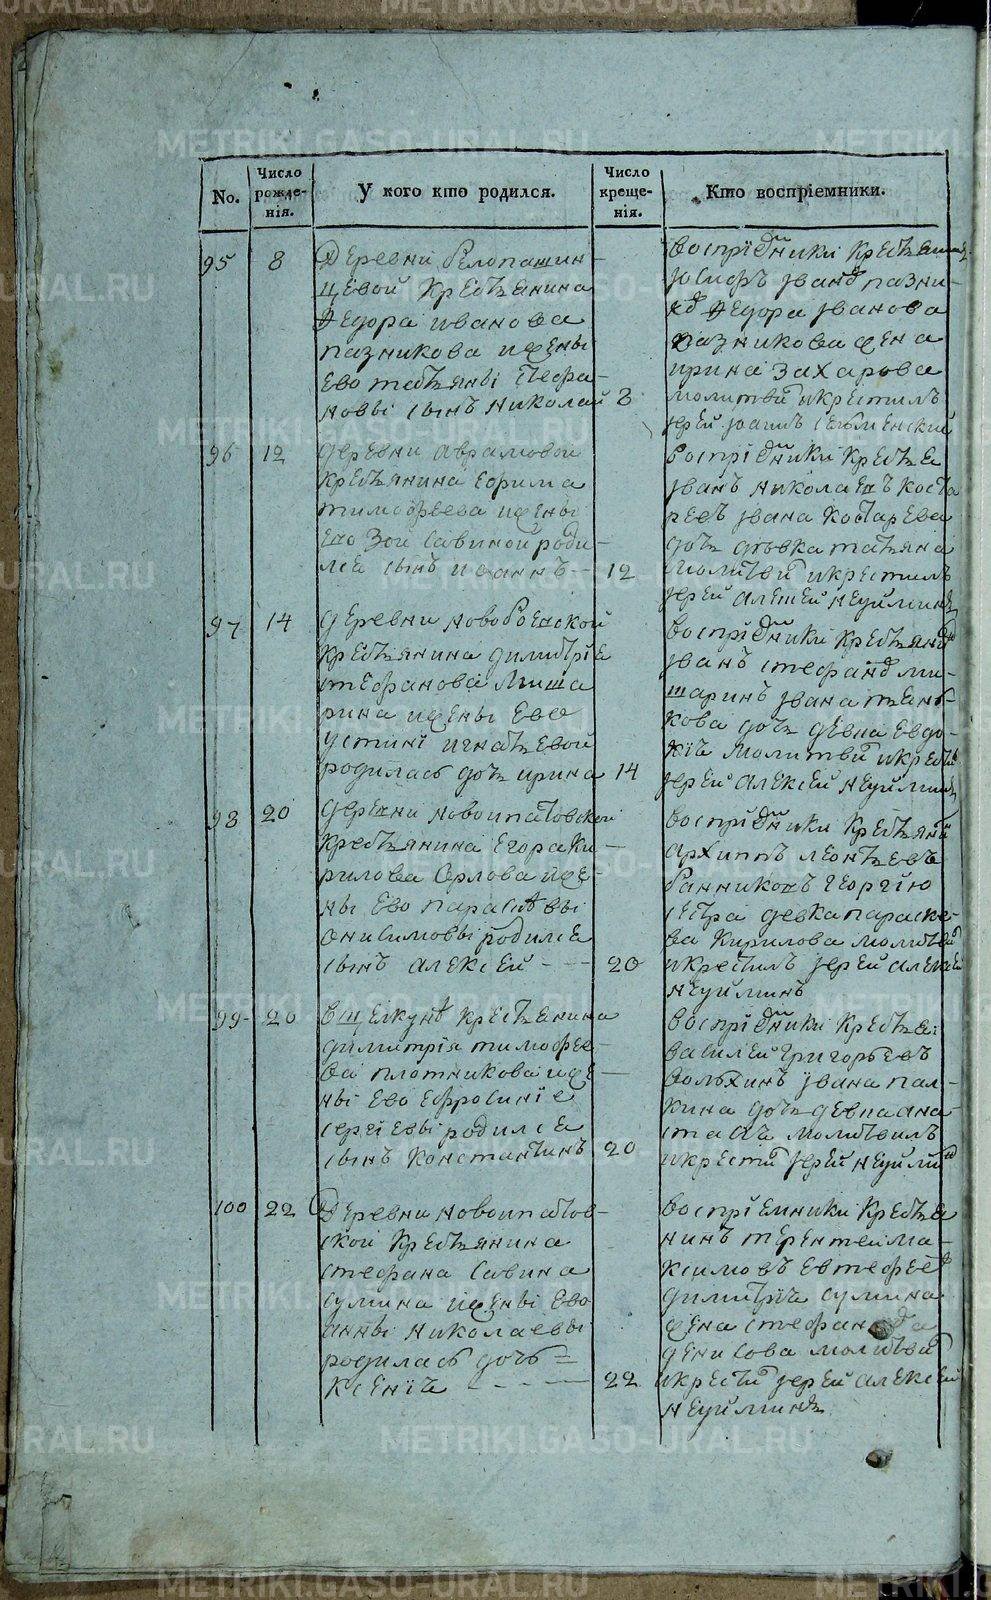 No.
Число рожде-нія.
У кого кто родился.
Число креще-нія.
Кто воспріемники.
95
8
Деревни белопашин-
цевой крестьянина
Федора иванова
пазникова и жены
ево татьяны стефа-
новы сынъ николай
8
Воспріемники крестьянинъ
Іосифъ Івано пазни-
ко Федора Іванова
пазникова жена
ирина захарова
молитви и крестилъ
Іерей
96
12
деревни аврамовой
крестьянина ефима
тимофеева и жены
ево Зои савиной роди-
лся сынъ иоаннъ
12
воспріемники крестья
Іванъ николаевъ коста
ревъ Івана костарева
дочь девка татьяна
молитви и крестилъ
Іерей алексей неуйминъ
97
14
деревни новобоевской
крестьянина димитрія
стефанова миша
рина и жены ево
устинї игнатьевой
родилась дочь ирина
14
воспріемники крестьяни
Іванъ стефано ми-
шаринъ Івана
кова дочь девка евдо-
кія молитви и крести
Іерей алексей неуйминъ
98
20
деревни новоипатовской
крестьянина егора ки-
рилова орлова и же
ны ево параскевы
онисимовы родился
сынъ алексей
20
воспріемники крестьяни
архиппъ леонтьевъ
банниковъ георгію
сестра девка параске-
ва кирилова молитви
и крестилъ Іерей алексей
неуйминъ
99
20
в щелкунѣ крестьянина
димитрія тимофее-
ва плотникова и же-
ны ево ефросиніе
сергіевы родился
сынъ константинъ
20
воспріемники крестья:
василей григорьевъ
вольхинъ Івана пал-
кина дочь девка ана-
стасія молитвилъ
и крести Іерей неуйми
100
22
Деревни новоипатов-
ской крестьянина
стефана савина
сулина и жены ево
анны николаевы
родилась дочь
ксенія
22
воспріемники крестья
нинъ терентей ма-
ксимовъ евтефее
димитрія сулина
жена стефани а
денисова молитви
и крести Іерей алексей
неуйминъ
METRIKI.GASO-URAL.RU